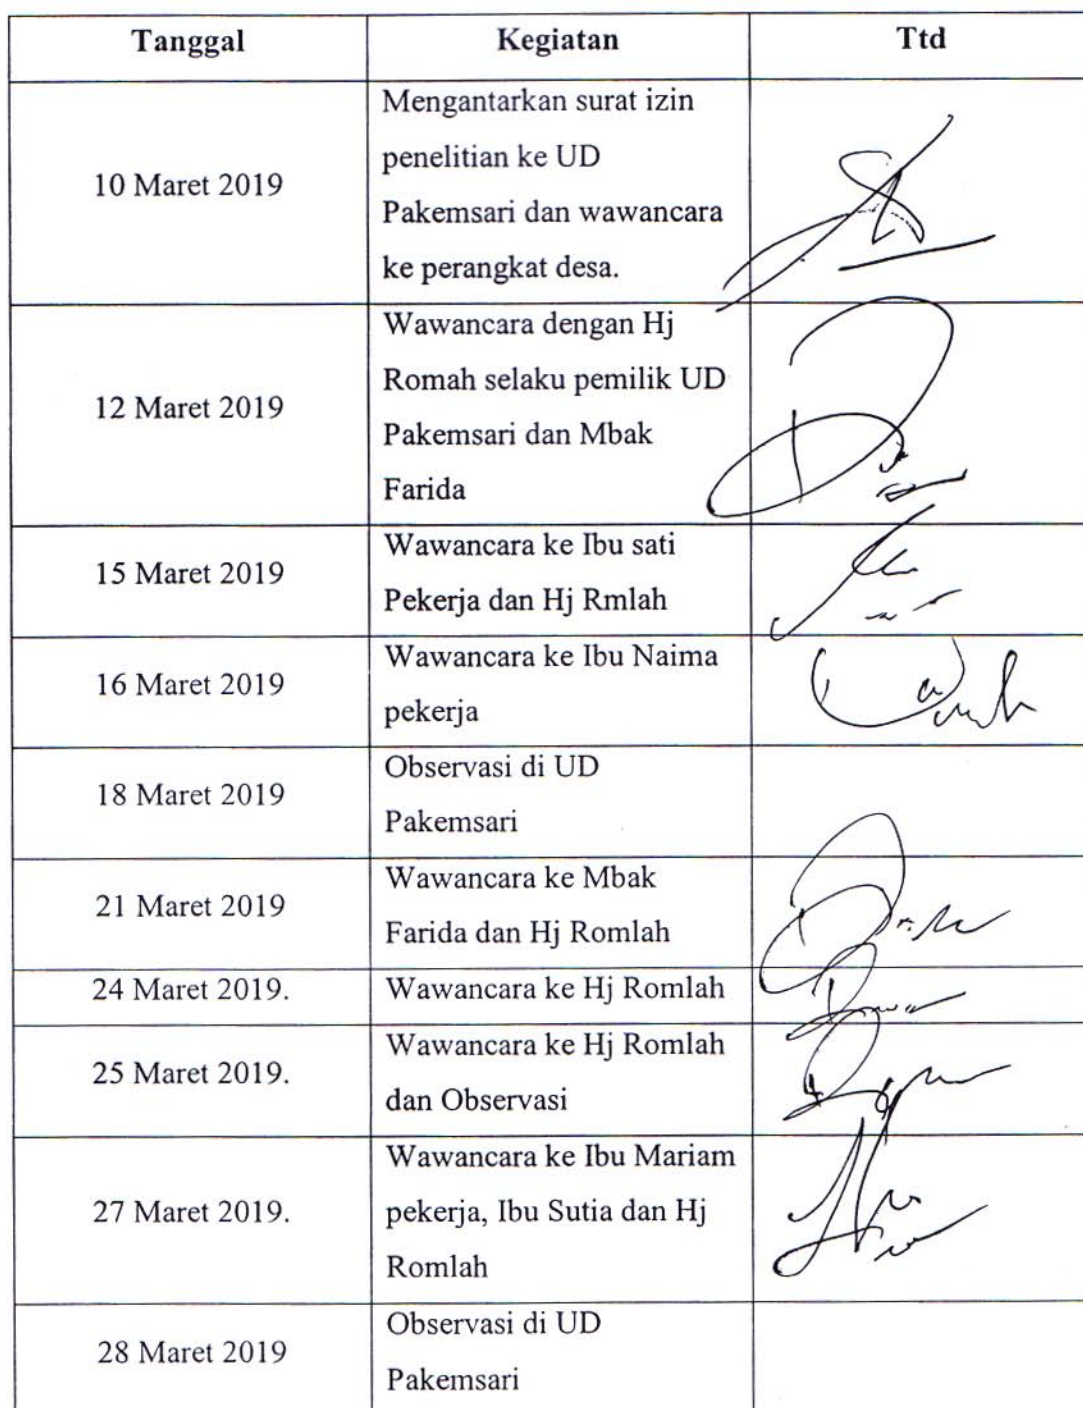 Tanggal Kegiatan Ttd
10 Maret 2019
Mengantarkan surat izin
penelitian ke UD
Pakemsari dan wawancara
ke perangkat desa.
12 Maret 2019
Wawancara dengan Hj
Romah selaku pemilik UD
Pakemsari dan Mbak
Farida
15 Maret 2019
Wawancara ke Ibu sati
Pekerja dan Hj Rmlah
16 Maret 2019
Wawancara ke Ibu Naima
pekerja
18 Maret 2019
Observasi di UD
Pakemsari
21 Maret 2019
Wawancara ke Mbak
Farida dan Hj Romlah
24 Maret 2019.
Wawancara ke Hj Romlah
25 Maret 2019.
Wawancara ke Hj Romlah
dan Observasi
27 Maret 2019.
Wawancara ke Ibu Mariam
pekerja, Ibu Sutia dan Hj
Romlah
28 Maret 2019
Observasi di UD
Pakemsari